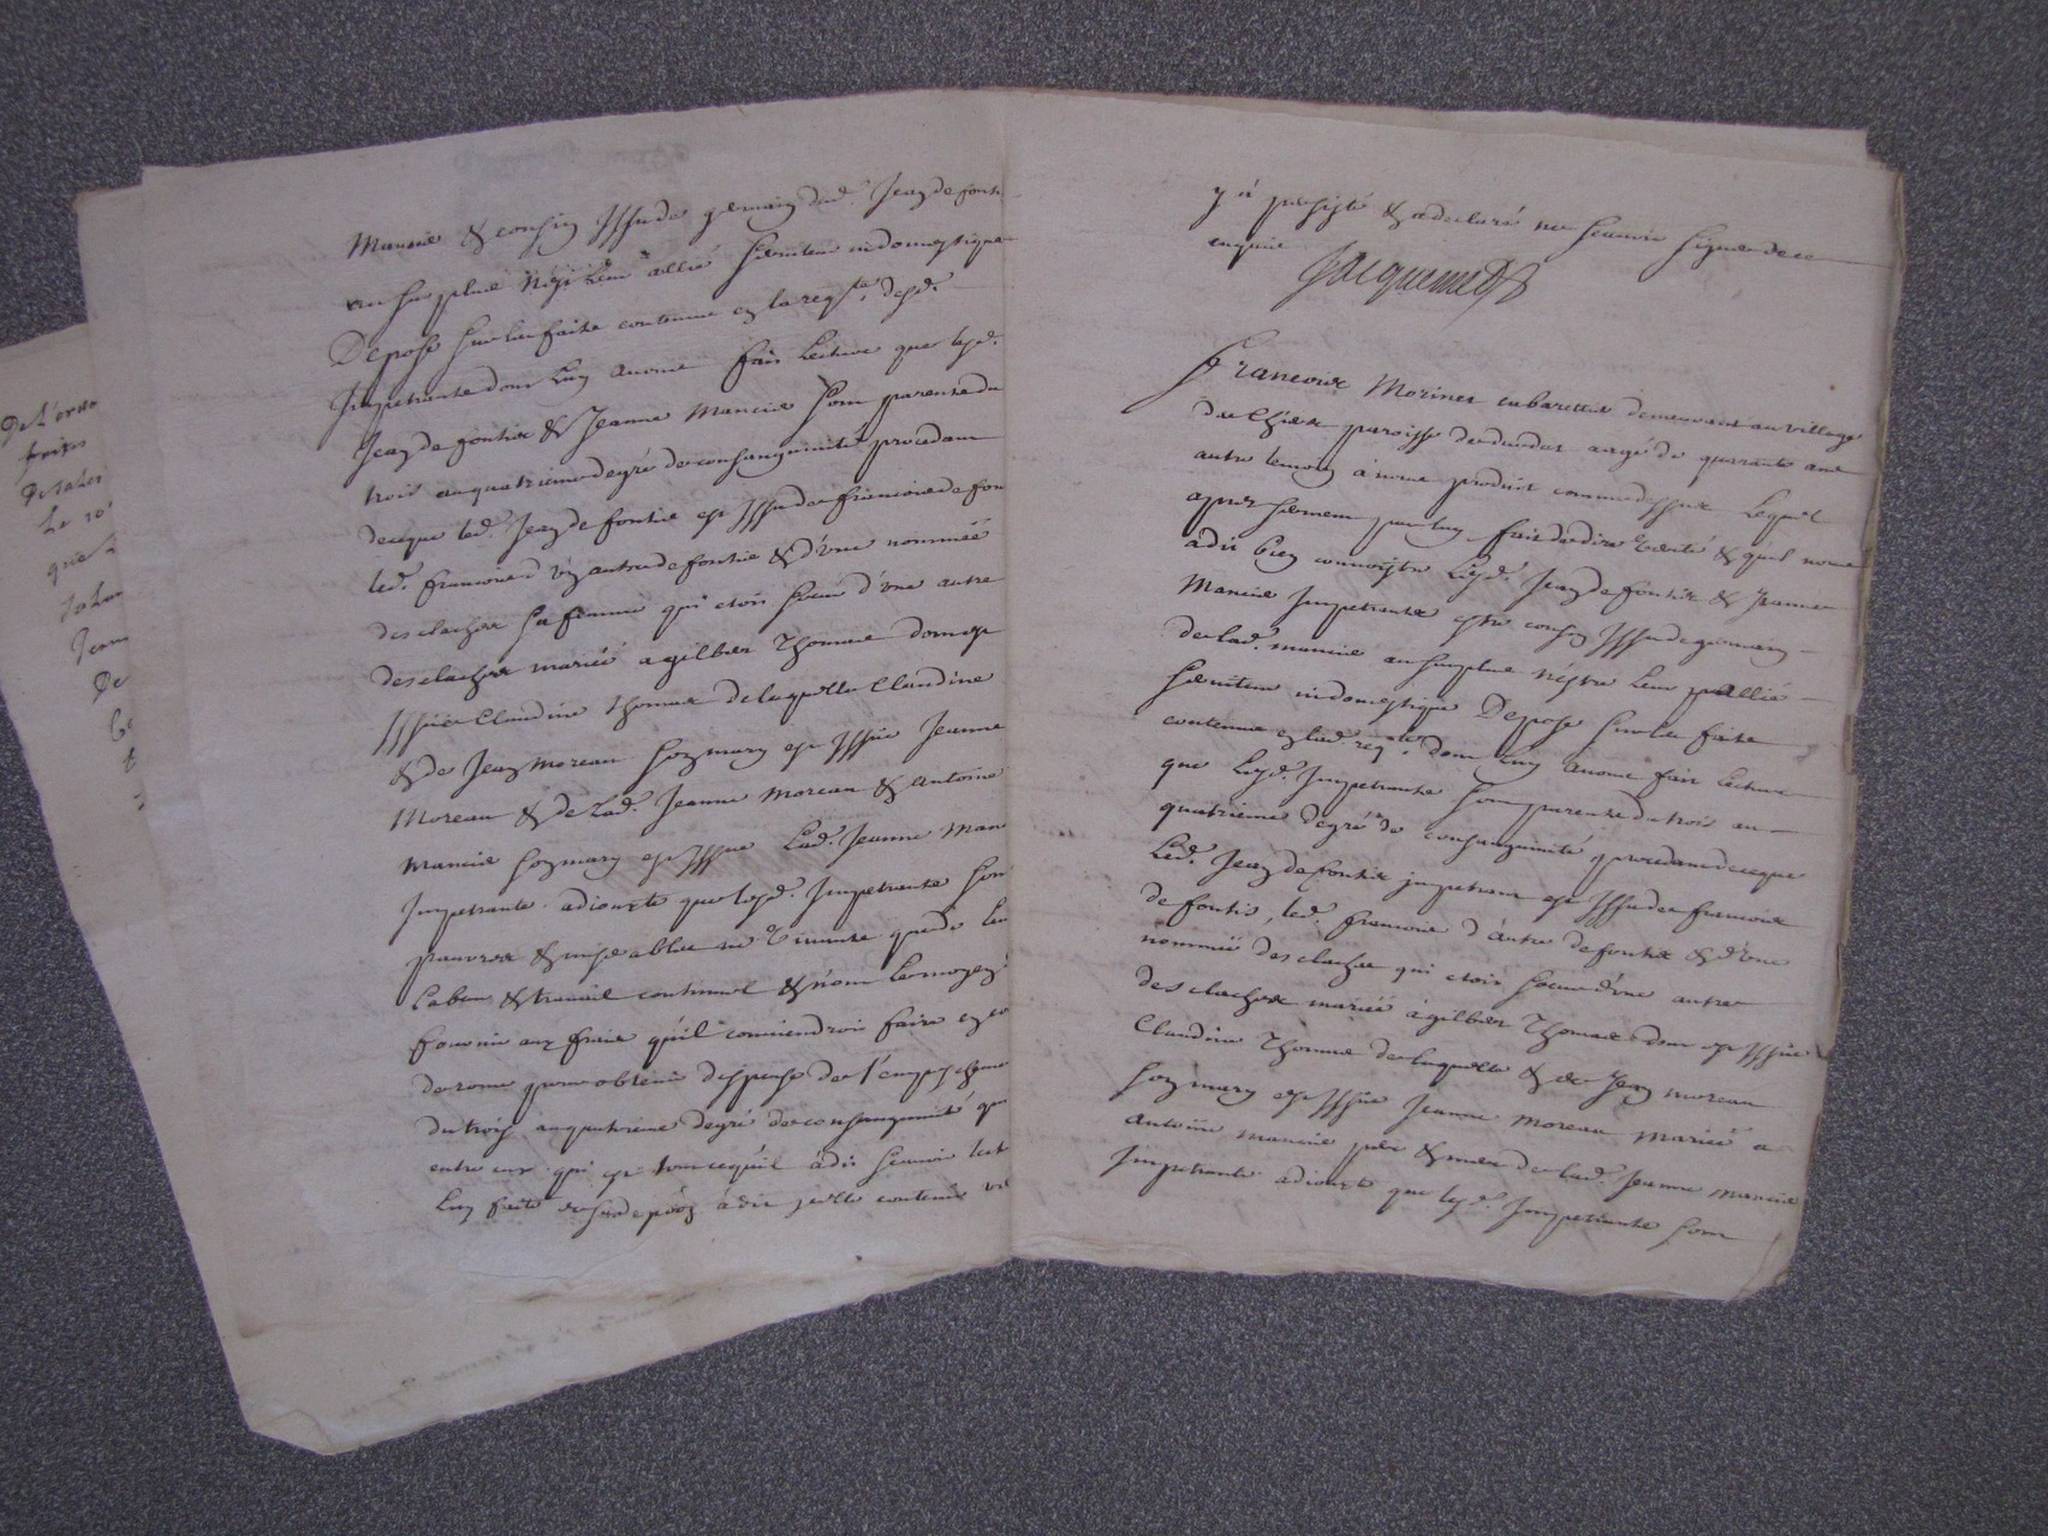 De L'exa
Le 10
que
Jean
De
Mancie & cousin issu de germain dud. Jean de fonti
au surplus n'est leur allié serviteur ni domestique
Depose sur les faits contenus en la reqte. desd.
Impetrants dont luy avons fait lecture que lesd.
Jean de fontis & Jeanne Mancie sont parents du
trois au quatrieme degré de consanguinité procedant
de ce que led. Jean de fontis est issu de francois de fon
led. francois d'un autre de fontis & d'une nommée
desclaches sa femme qui etoit soeur d'une autre
desclaches mariée a gilbert Thomas dont est
issüe Claudine Thomas de laquelle Claudine
& de Jean Moreau son mary est issüe Jeanne
Moreau & de Lad. Jeanne Moreau & antoine
Mancie son mary est issue Lad. Jeanne Man
Impetrante adjoute que lesd. Impetrants son
pauvres & miserables ne vivants que de leu
labeur & travail continuel & n'ont le moyen
fournir aux frais qu'il conviendroit faire en co
de rome pour obtenir dispense de l'empescheme
du trois au quatrieme degré de consanguinité qui
entre eux qui est tout ce qu'il a dit scavoir lect
Luy faite de sa depoon a dit icelle contenir ve
y a persisté & a declaré ne scavoir signer de ce
enquis Jacquemet
francois Morinet cabarettier demeurant au village
de paroisse de agé de quarante ans
autre temoin a nous produit comme dessus Lequel
apres serment par luy fait de dire verité & qu'il nous
a dit bien connoistre Lesd. Jean de fontis & Jeanne
Mancie Impetrants estre cousin issu de germain
de lad. mancie au surplus n'estre leur allié
serviteur ni domestique Depose sur les faits
contenus en lad. reqte. dont luy avons fait lecture
que Lesd. Impetrants sont parents du trois au
quatrieme degré de consanguinité procedant de ce que
Led. Jean de fontis impetrant est issu de francois
de fontis, led. francois d'autre de fontis & d'une
nommée desclaches qui etoit soeur d'une autre
desclaches mariée a gilbert Thomas dont est issüe
Claudine Thomas de laquelle & de Jean moreau
son mary est issüe Jeanne moreau mariée a
antoine mancie pere & mere de lad. Jeanne mancie
Impetrante adjoute que lesd. Impetrants sont